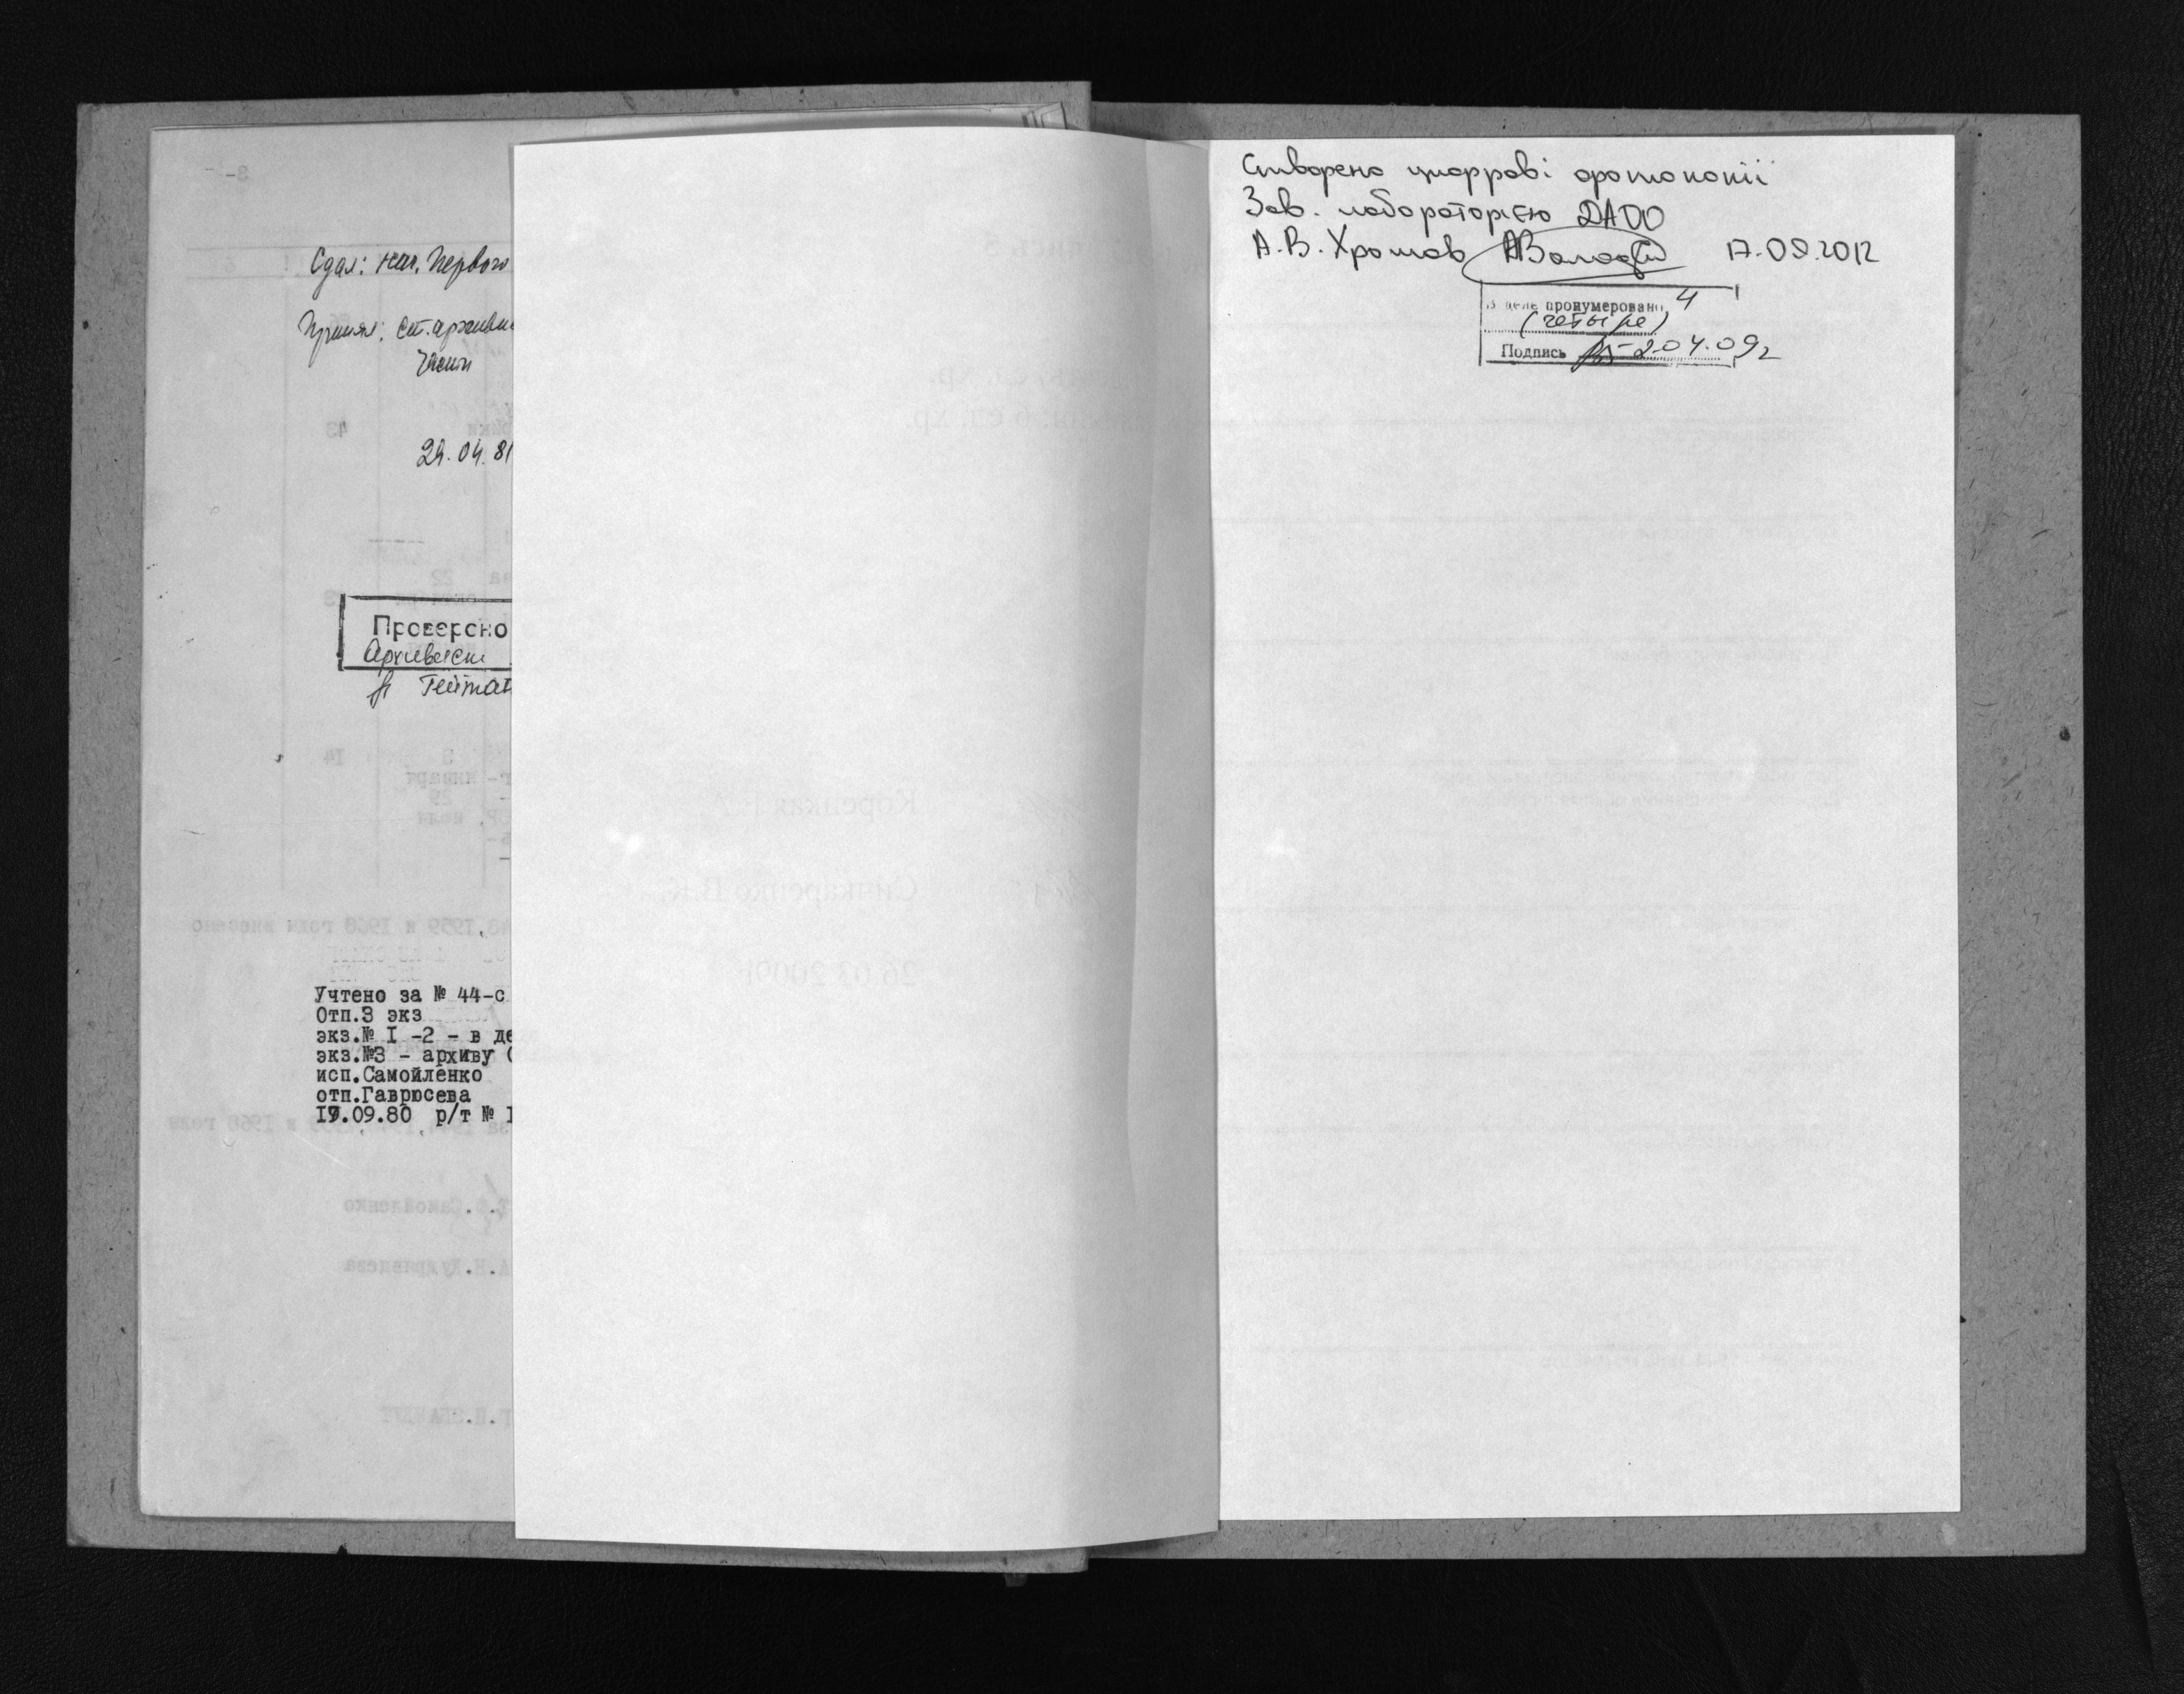 Сдал: нач. Первого
Принял: ст. архивис
части
29.04.81
Проверено
Архивист
Учтено за № 44-с
Отп.3 экз
экз.№ I -2 - в де
экз.№3 - архиву
исп.Самойленко
отп.Гаврюсева
19.09.80 р/т №
Створено цифрові фотокопії
Зав. лабораторією ДАОО
А.В. Хромов 17.09.2012
В деле пронумеровано 4
(четыре)
Подпись 2.04.09г